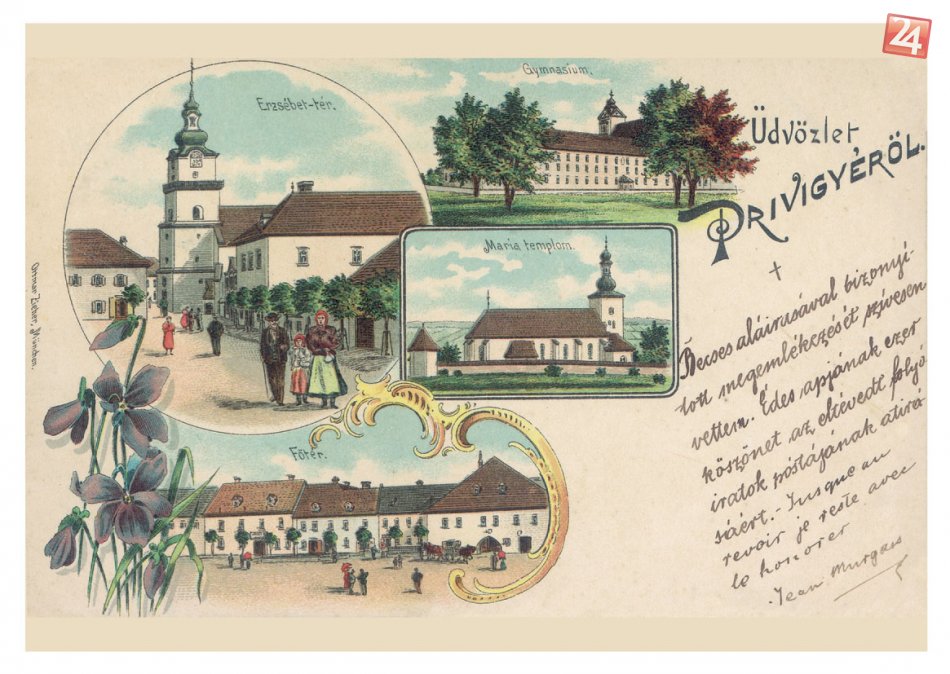 24
Gymnasium.
Erzsébet-tér.
Üdvözlet
PRIVIGYÉRÖL.
Mária templom.
Ottmar Zieher, München.
Főtér.
Becses aláirásával bizonyi-
tott megemlékezését szívesen
vettem. Édes apjának ezer
köszönet az eltévedt folyó
iratok póstájának átirá
sáért.- Jusque au
revoir je reste avec
le honorer
Jean Murgaco